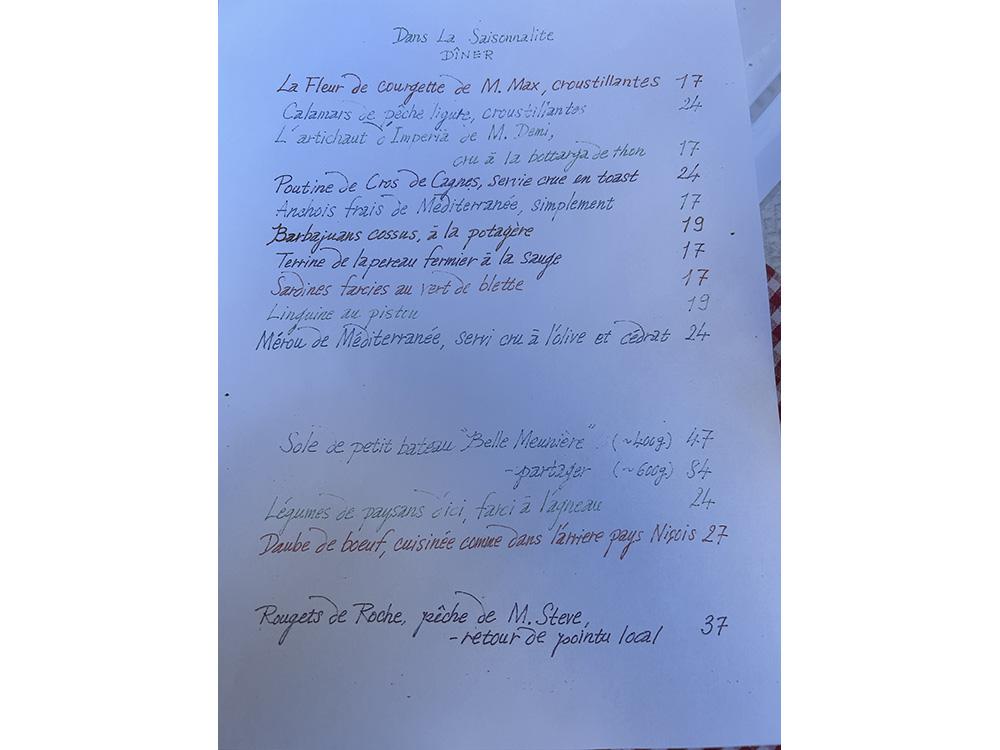 Dans La Saisonnalite
DÎNER
La Fleur de courgette de M. Max, croustillantes 17
Calamars de pêche ligure, croustillantes 24
L'artichaut d'Imperia de M. Demi,
cru à la bottarga de thon 17
Poutine de Cros de Cagnes, servie crue en toast 24
Anchois frais de Méditerranée, simplement 17
Barbajuans cossus, à la potagère 19
Terrine de lapereau fermier à la sauge 17
Sardines farcies au vert de blette 17
Linguine au pistou 19
Mérou de Méditerranée, servi cru à l'olive et cédrat 24
Sole de petit bateau "Belle Meunière" (~400g.) 47
-partager (~600g.) 84
Légumes de paysans d'ici, farci à l'agneau 24
Daube de boeuf, cuisinée comme dans l'arriere pays Niçois 27
Rougets de Roche, pêche de M. Steve,
-retour de pointu local 37